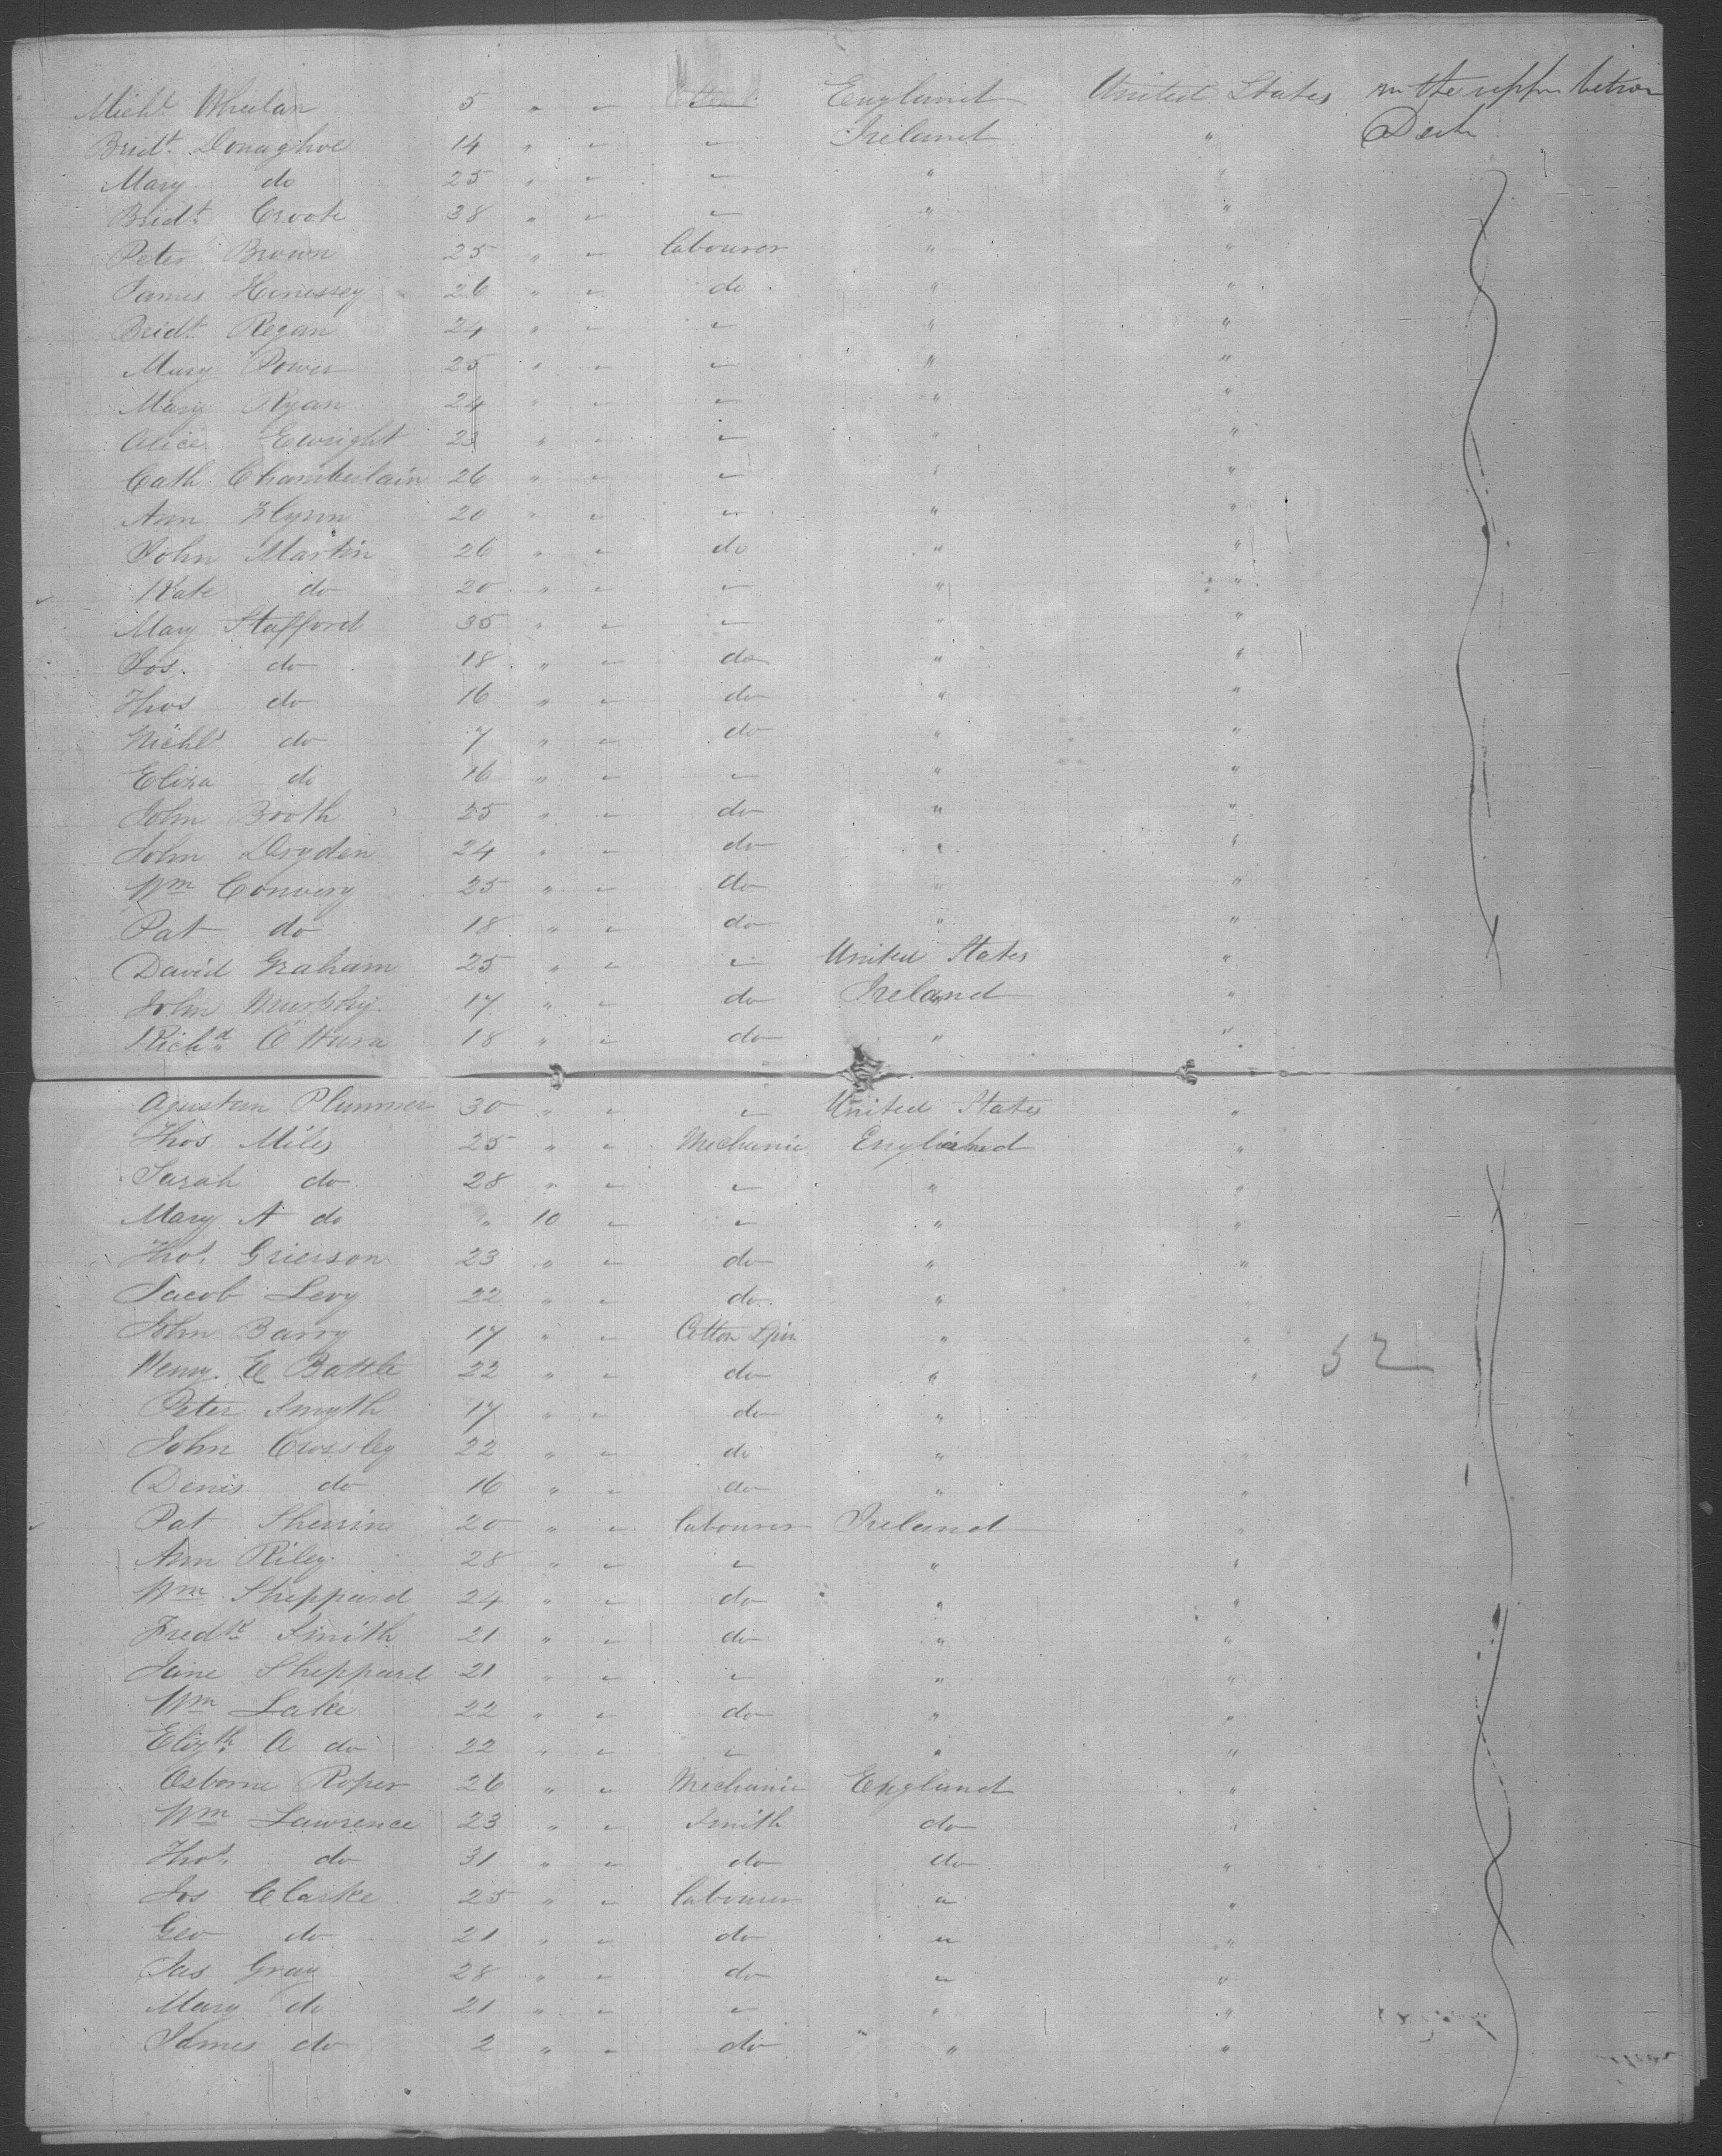 Michl Whelan 5 " " England United States on the upper between
Bridt. Donaghoe 14 " " " Ireland " Deck
Mary do 25 " " " " "
Bridt. Crook 38 " " " " "
Peter Brown 25 " " labourer " "
James Henessey 26 " " do " "
Bridt. Regan 24 " " " " "
Mary Power 25 " " " " "
Mary Ryan 24 " " " " "
Alice Ewright 23 " " " " "
Cath Chamberlain 26 " " " " "
Ann Flynn 20 " " " " "
John Martin 26 " " do " "
Kate do 20 " " " " "
Mary Stafford 35 " " " " "
Jos. do 18 " " do " "
Thos do 16 " " do " "
Nichls do 7 " " do " "
Eliza do 16 " " " " "
John Booth 25 " " do " "
John Dryden 24 " " do " "
Wm Convery 25 " " do " "
Pat do 18 " " do " "
David Graham 25 " " " United States "
John Murphy 17 " " do Ireland "
Richd O'Hara 18 " " do " "
Agustan Plummer 30 " " " United States "
Thos Miles 25 " " Mechanic England "
Sarah do 28 " " " " "
Mary A do " 10 " " " "
Thos. Grierson 23 " " do " "
Jacob Levy 22 " " do " "
John Barry 17 " " Cotton Spin " "
Henry E Battle 22 " " do " " 52
Peter Smyth 17 " " do " "
John Crossley 22 " " do " "
Denis do 16 " " do " "
Pat 20 " " labourer Ireland "
Ann Riley 28 " " " " "
Wm Sheppard 24 " " do " "
Fredk Smith 21 " " do " "
Jane Sheppard 21 " " " " "
Wm Lake 22 " " do " "
Elizth A do 22 " " " " "
Osborne Roper 26 " " Mechanic England "
Wm Lawrence 23 " " Smith do "
Thos. do 31 " " do do "
Jos Clarke 25 " " labourer " "
Geo do 21 " " do " "
Jas Gray 28 " " do " "
Mary do 21 " " " " "
James do 2 " " do " "